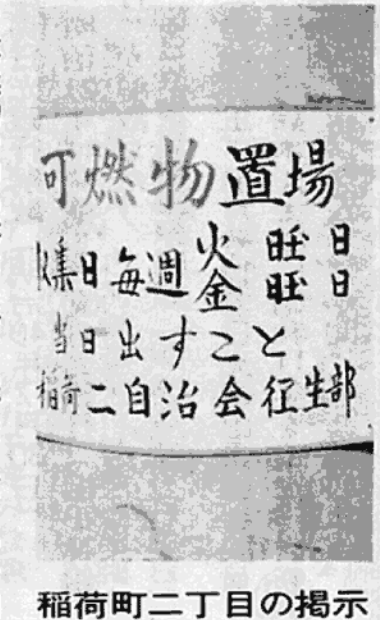 可燃物置場
収集日毎週 火旺日
金旺日
当日出すこと
稲荷二自治会征生部
稲荷町二丁目の掲示